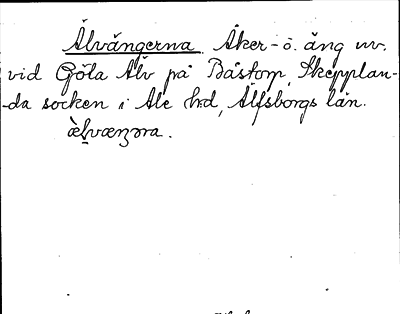 Älvängerna. Åker- o. äng uv.
vid Göta Älv på Båstorp, Skepplan-
-da socken i Ale hrd, Älfsborgs län.